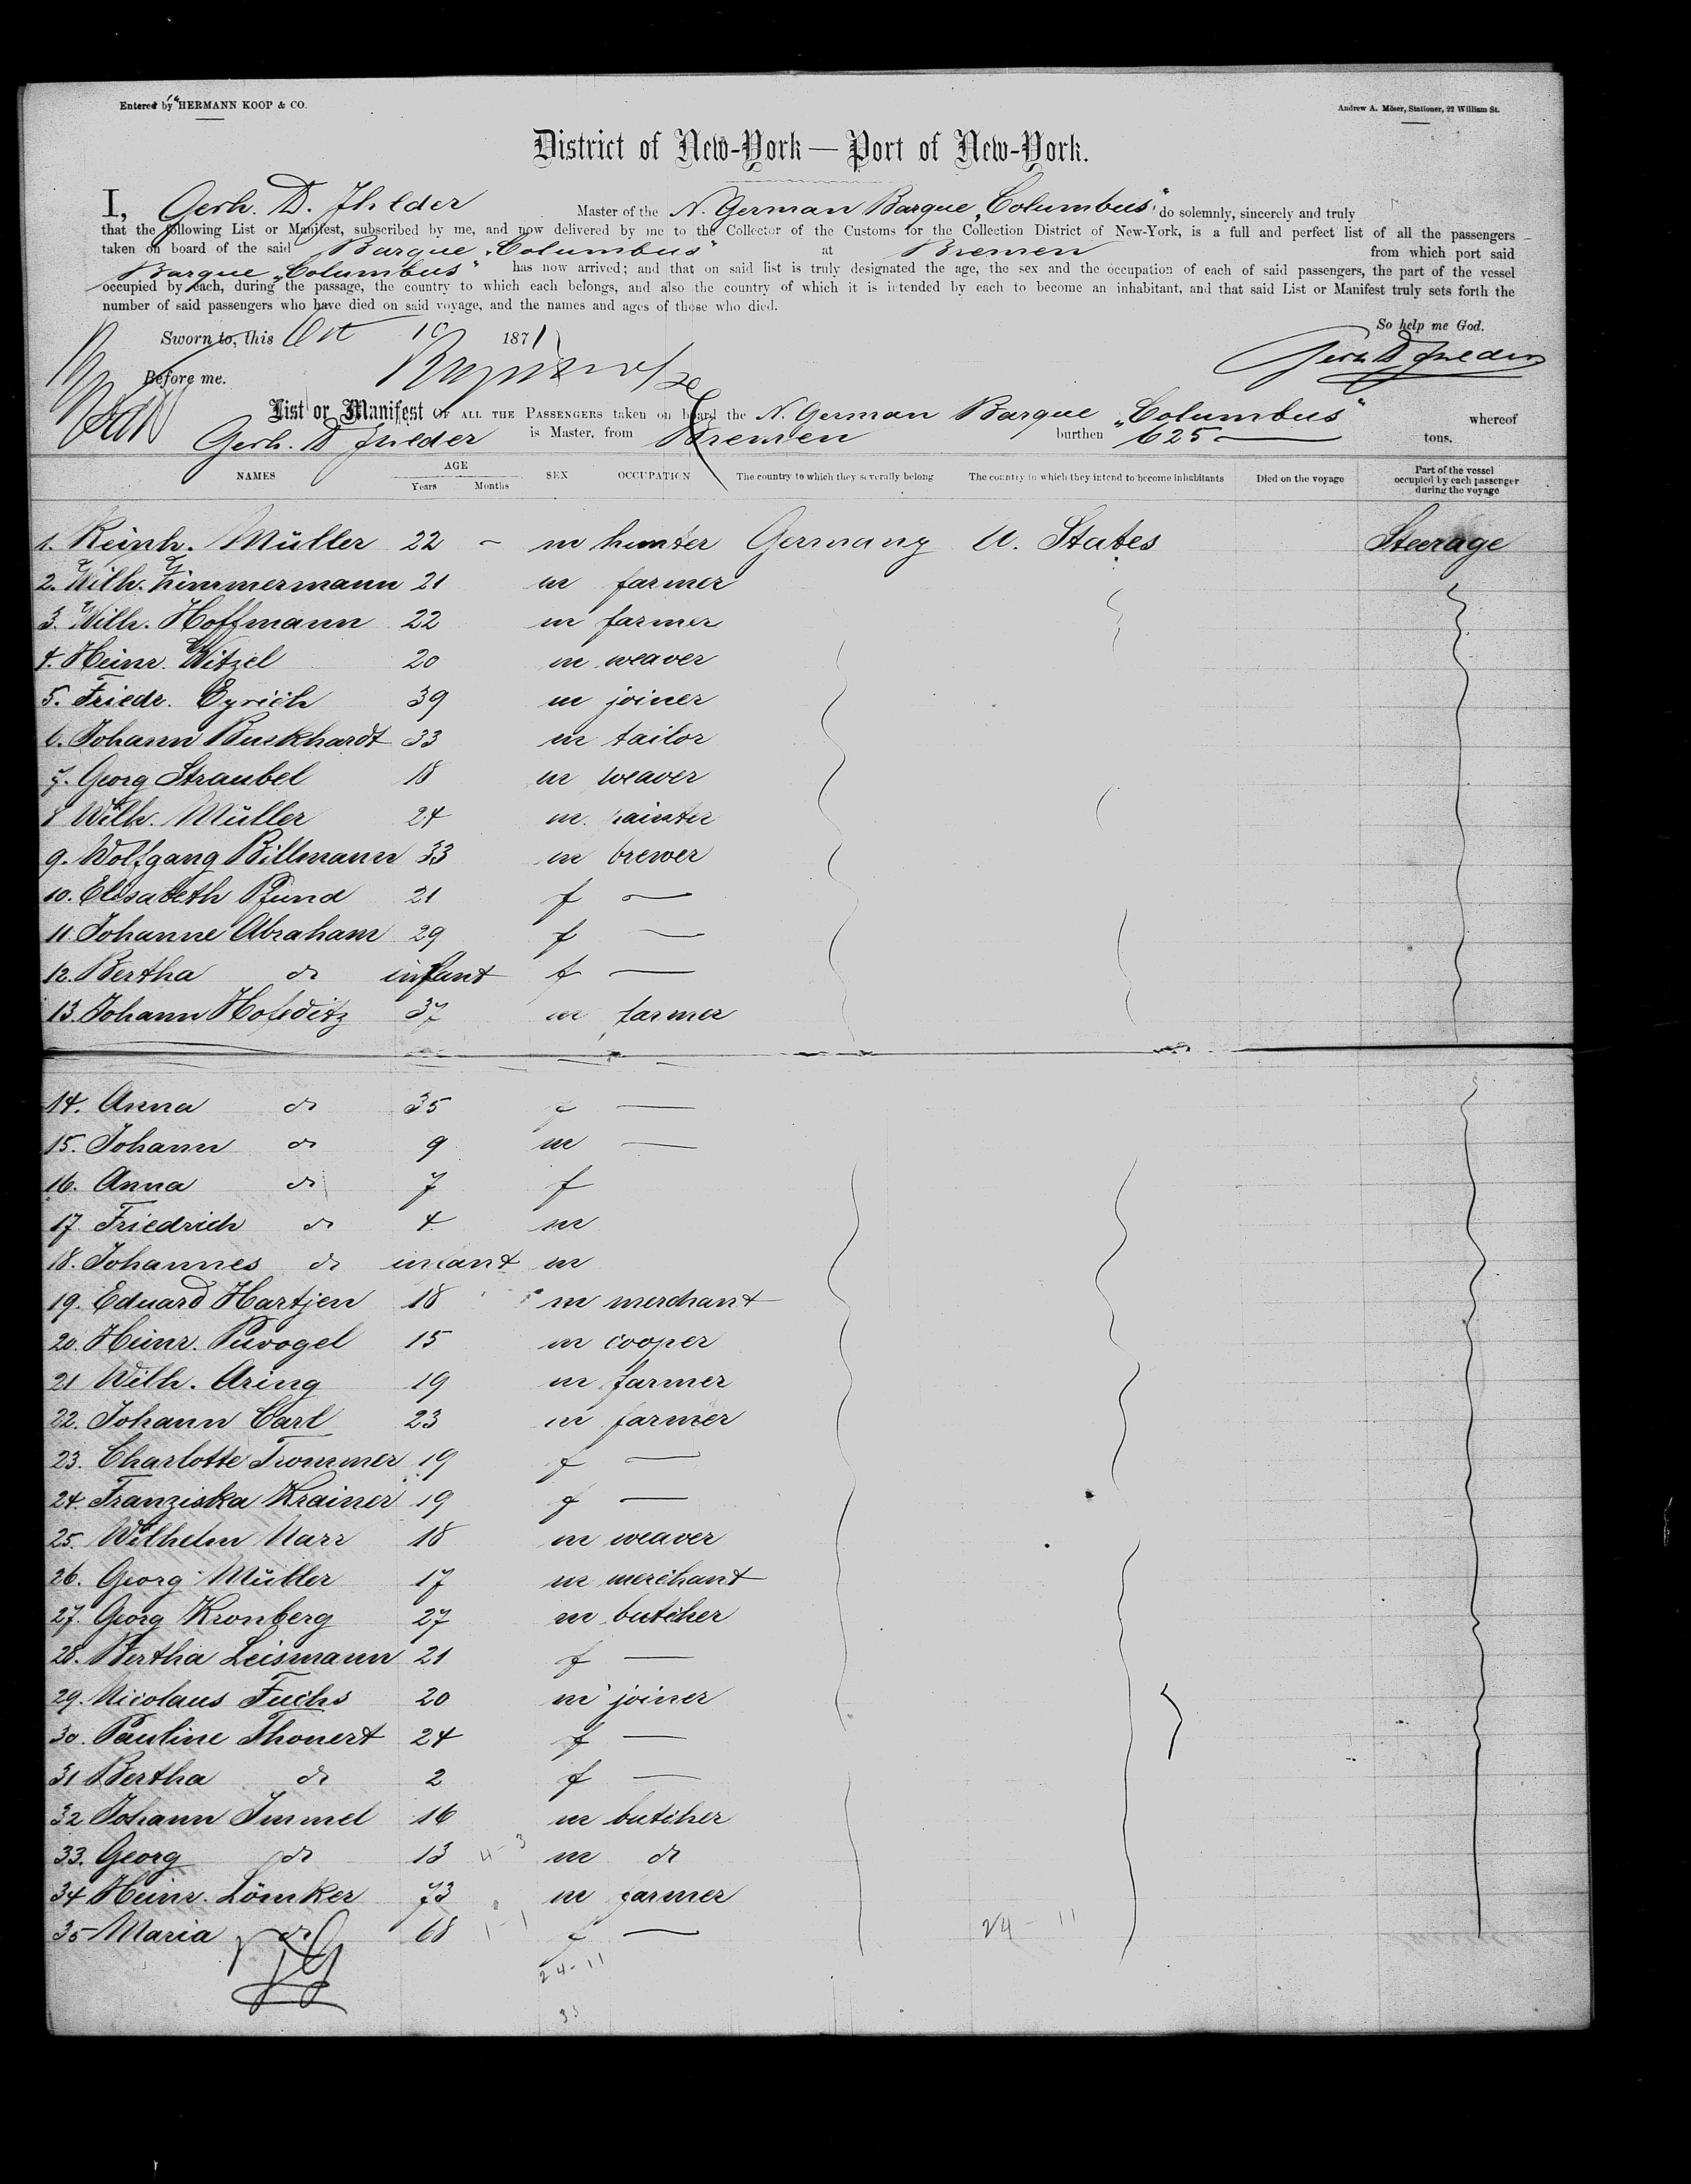 Entered by HERMANN KOOP & CO.
Andrew A. Möser, Stationer, 22 William St.
District of New-York — Port of New-York.
I, Gerh. D. Ihlder Master of the N. German Barque „Columbus" do solemnly, sincerely and truly
that the following List or Manifest, subscribed by me, and now delivered by me to the Collector of the Customs for the Collection District of New-York, is a full and perfect list of all the passengers
taken on board of the said Barque „Columbus" at Bremen from which port said
Barque „Columbus" has now arrived; and that on said list is truly designated the age, the sex and the occupation of each of said passengers, the part of the vessel
occupied by each, during the passage, the country to which each belongs, and also the country of which it is intended by each to become an inhabitant, and that said List or Manifest truly sets forth the
number of said passengers who have died on said voyage, and the names and ages of those who died.
So help me God.
Sworn to, this Oct 1871
Gerh D Ihlder
Before me.
List or Manifest OF ALL THE PASSENGERS taken on board the N. German Barque „Columbus" whereof
Gerh. D Ihlder is Master, from Bremen burthen 625 — tons.
NAMES AGE Years Months SEX OCCUPATION The country to which they severally belong The country in which they intend to become inhabitants Died on the voyage Part of the vessel occupied by each passenger during the voyage
1. Reinh. Müller 22 – m hunter Germany U. States Steerage
2. Wilh. Zimmermann 21 m farmer
3. Wilh. Hoffmann 22 m farmer
4. Heinr. Witzel 20 m weaver
5. Friedr. Eyrich 39 m joiner
6. Johann Burkhardt 33 m tailor
7. Georg Straubel 18 m weaver
8 Wilh. Müller 24 m painter
9. Wolfgang Billmann 33 m brewer
10. Elisabeth Pfund 21 f —
11. Johanne Abraham 29 f —
12. Bertha do infant f —
13. Johann Hofeditz 37 m farmer
14. Anna do 35 f —
15. Johann do 9 m —
16. Anna do 7 f
17 Friedrich do 4 m
18. Johannes do infant m
19. Eduard Hartjen 18 m merchant
20. Heinr. Puvogel 15 m cooper
21 Wilh. Aring 19 m farmer
22. Johann Carl 23 m farmer
23. Charlotte Trommer 19 f —
24. Franziska Krainer 19 f —
25. Wilhelm Narr 18 m weaver
26. Georg Müller 17 m merchant
27. Georg Kronberg 27 m butcher
28. Bertha Leismann 21 f —
29. Nicolaus Fuchs 20 m joiner
30. Pauline Thonert 24 f —
31 Bertha do 2 f —
32 Johann Immel 16 m butcher
33. Georg do 13 4-3 m do
34 Heinr. Lömker 73 m farmer
35 Maria do 68 1-1 f — 24-11
24-11
35